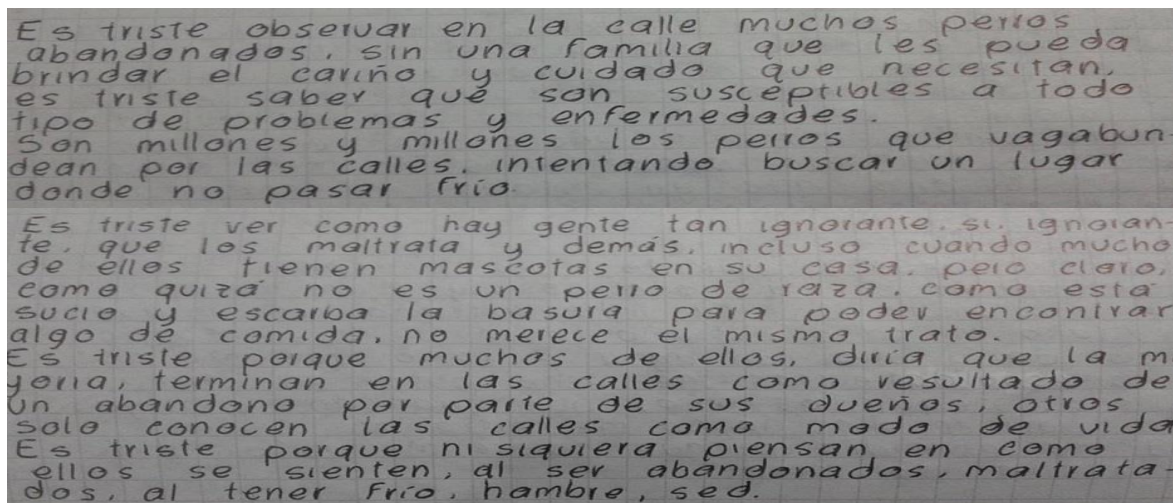 Es triste observar en la calle muchos perros
abandonados, sin una familia que les pueda
brindar el cariño y cuidado que necesitan,
es triste saber que son susceptibles a todo
tipo de problemas y enfermedades.
Son millones y millones los perros que vagabun
dean por las calles, intentando buscar un lugar
donde no pasar frío.
Es triste ver como hay gente tan ignorante, si, ignoran
te, que los maltrata y demás, incluso cuando mucho
de ellos tienen mascotas en su casa, pero claro,
como quizá no es un perro de raza, como está
sucio y escarba la basura para poder encontrar
algo de comida, no merece el mismo trato.
Es triste porque muchos de ellos, diría que la m
yoria, terminan en las calles como resultado de
un abandono por parte de sus dueños, otros
solo conocen las calles como modo de vida
Es triste porque ni siquiera piensan en como
ellos se sienten, al ser abandonados, maltrata-
dos, al tener frío, hambre, sed.